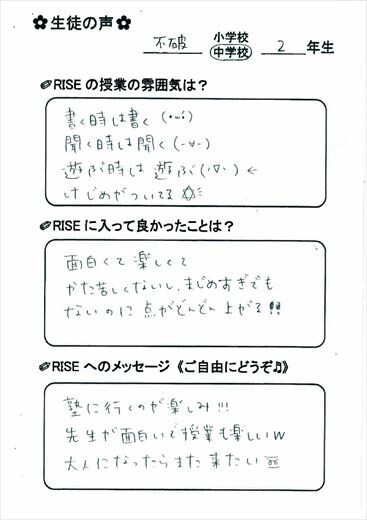 ✿生徒の声✿
不破 小学校 中学校 2 年生
RISEの授業の雰囲気は？
書く時は書く(･ω･́)
聞く時は聞く(-∀-)
遊ぶ時は遊ぶ(･∇･)←
けじめがついてる
RISEに入って良かったことは？
面白くて楽しくて
かた苦しくないし、まじめすぎでも
ないのに点がどんどん上がる!!
RISEへのメッセージ《ご自由にどうぞ♫》
塾に行くのが楽しみ!!!
先生が面白いで授業も楽しいw
大人になったらまた来たい